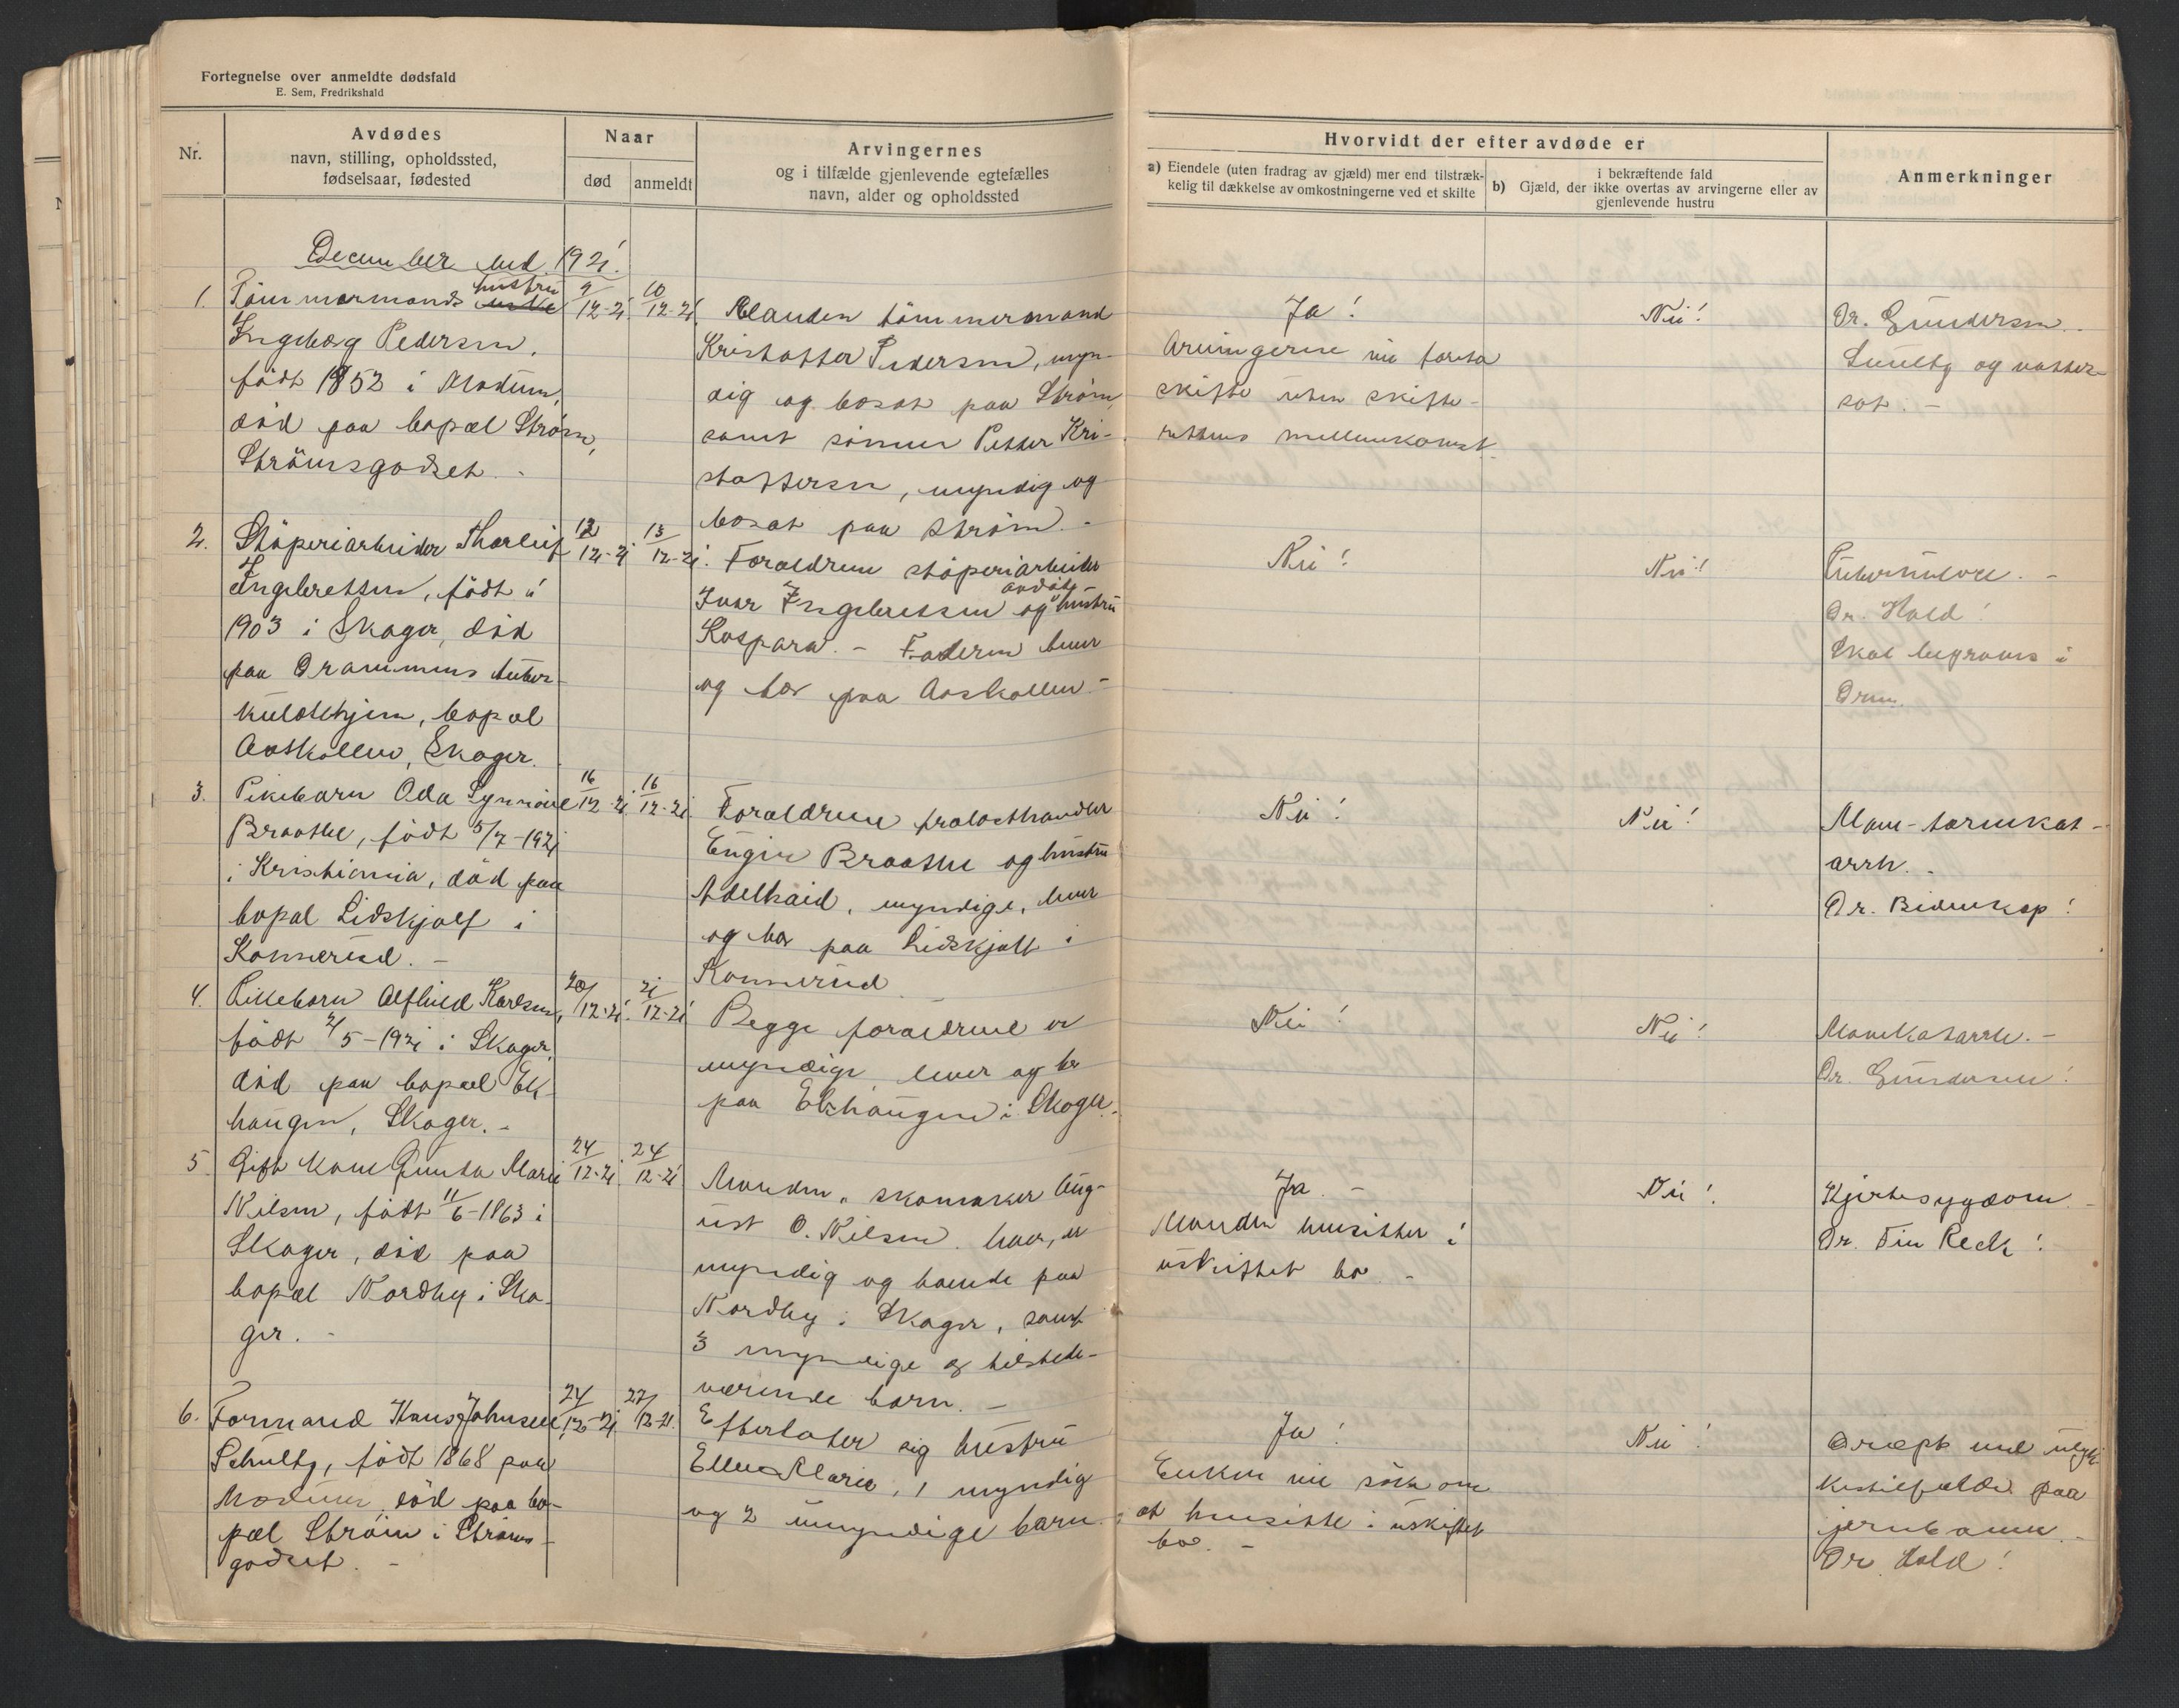 Fortegnelse over anmeldte dødsfald
E. Sem, Fredrikshald
Nr.
Avdødes
navn, stilling, opholdssted,
fødselsaar, fødested
Naar
død
anmeldt
Arvingernes
og i tilfælde gjenlevende egtefælles
navn, alder og opholdssted
Hvorvidt der efter avdøde er
a) Eiendele (uten fradrag av gjæld) mer end tilstræk-
kelig til dækkelse av omkostningerne ved et skifte
b) i bekræftende fald
Gjæld, der ikke overtas av arvingerne eller av
gjenlevende hustru
Anmerkninger
December md. 1921.
1.
Tömmermands enke hustru
Ingeborg Pedersen,
födt 1852 i Modum,
död paa bopæl Ström,
Strömsgodset. -
9/12-21.
10/12-21.
Manden tömmermand
Kristoffer Pedersen, myn-
dig og bosat paa Ström,
samt sönnen Petter Kri-
stoffersen, myndig og
bosat paa Ström. -
Ja!
Arvingerne vil foreta
skifte uten skifte-
rettens mellemkomst.
Nei!
Dr. Gundersen.
og vatter-
sot. -
2.
Stöperiarbeider Thorleif
Ingebretsen, födt i
1903 i Skoger, död
paa Drammens tuber-
kulosehjem, bopæl
Aaskollen, Skoger.
12/12-21.
13/12-21.
Forældrene stöperiarbeider
Ivar Ingebretsen og avdöde hustru
Kaspara. - Faderen lever
og bor paa Aaskollen. -
Nei!
Nei!
Tuberkulose. -
Dr. Hald!
Skal begraves i
Drm.
3.
Pikebarn Oda Synnöve
Braathe, födt 5/7-1921
i Kristiania, död paa
bopæl Lidskjalf i
Konnerud. -
16/12-21.
16/12-21.
Forældrene
Braathe og hustru
Adelhaid, myndige, lever
og bor paa Lidskjalf i
Konnerud
Nei!
Nei!
Mave-tarmkat-
arrh. -
Dr. Bidenkap!
4.
Pikebarn Alfhild Karlsen,
födt 2/5-1921 i Skoger,
död paa bopæl Ek-
haugen, Skoger. -
20/12-21.
21/12-21
Begge forældrene er
myndige, lever og bor
paa Ekhaugen i Skoger. -
Nei!
Nei!
Mavekatarrh. -
Dr. Gundersen!
5.
Gift kone Gunda Marie
Nilsen, födt 11/6-1863 i
Skoger, död paa
bopæl Nordby i Sko-
ger. -
24/12-21.
24/12-21
Manden, skomaker Aug-
ust O. Nilsen lever, er
myndig og boende paa
Nordby i Skoger, samt
3 myndige og tilstede-
værende barn. -
Ja. -
Manden hensitter i
uskiftet bo. -
Nei!
Hjertesygdom. -
Dr. Fin Reck!
6.
Formand Hans Johnsen
Schultz, födt 1868 paa
Modum, död paa bo-
pæl Ström i Ströms-
godset. -
24/12-21.
27/12-21.
Efterlater sig hustru
Ellen Marie, 1 myndig
og 2 umyndige barn. -
Ja!
Enken vil söke om
at hensitte i uskiftet
bo. -
Nei!
Dræpt ved ulyk-
kestilfælde paa
jernbanen. -
Dr. Hald!